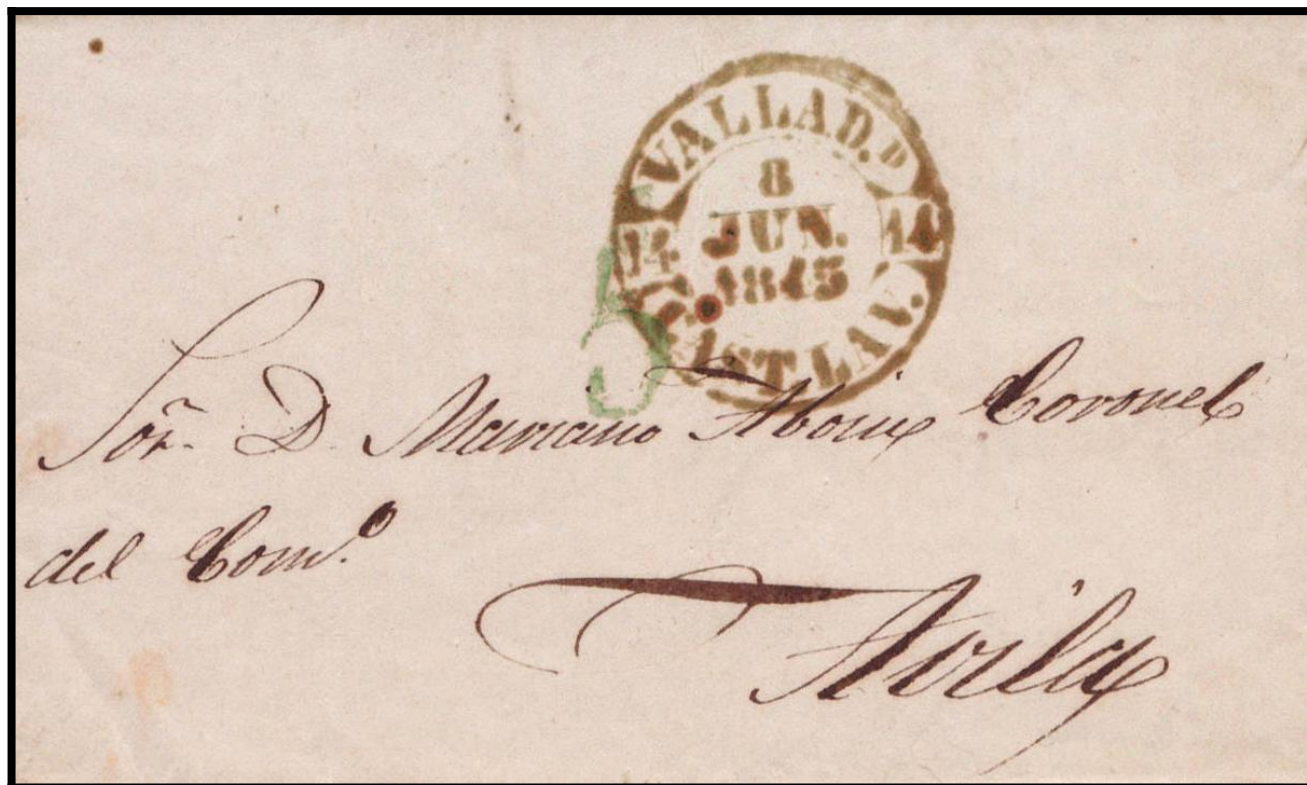 VALLAD.D
8
JUN.
1845
14 14
CAST LA V.
5
Sor. D. Mariano Aboin Coronel
del Com.o
Avila